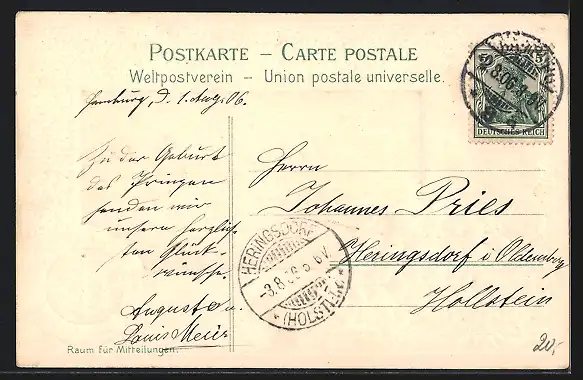 POSTKARTE – CARTE POSTALE
Weltpostverein – Union postale universelle.
Hamburg, d. 1. Aug. 06.
Zu der Geburt
des Prinzen
senden wir
unsern herzlich-
sten Glück-
wünsche.
Auguste u.
Louis Meier
Raum für Mitteilungen.
Herrn
Johannes Pries
Heringsdorf i Oldenburg
Hollstein
HERINGSDORF
-3.8.06 5-6V.
* (HOLST.) *
5 5
DEUTSCHES REICH
20,-